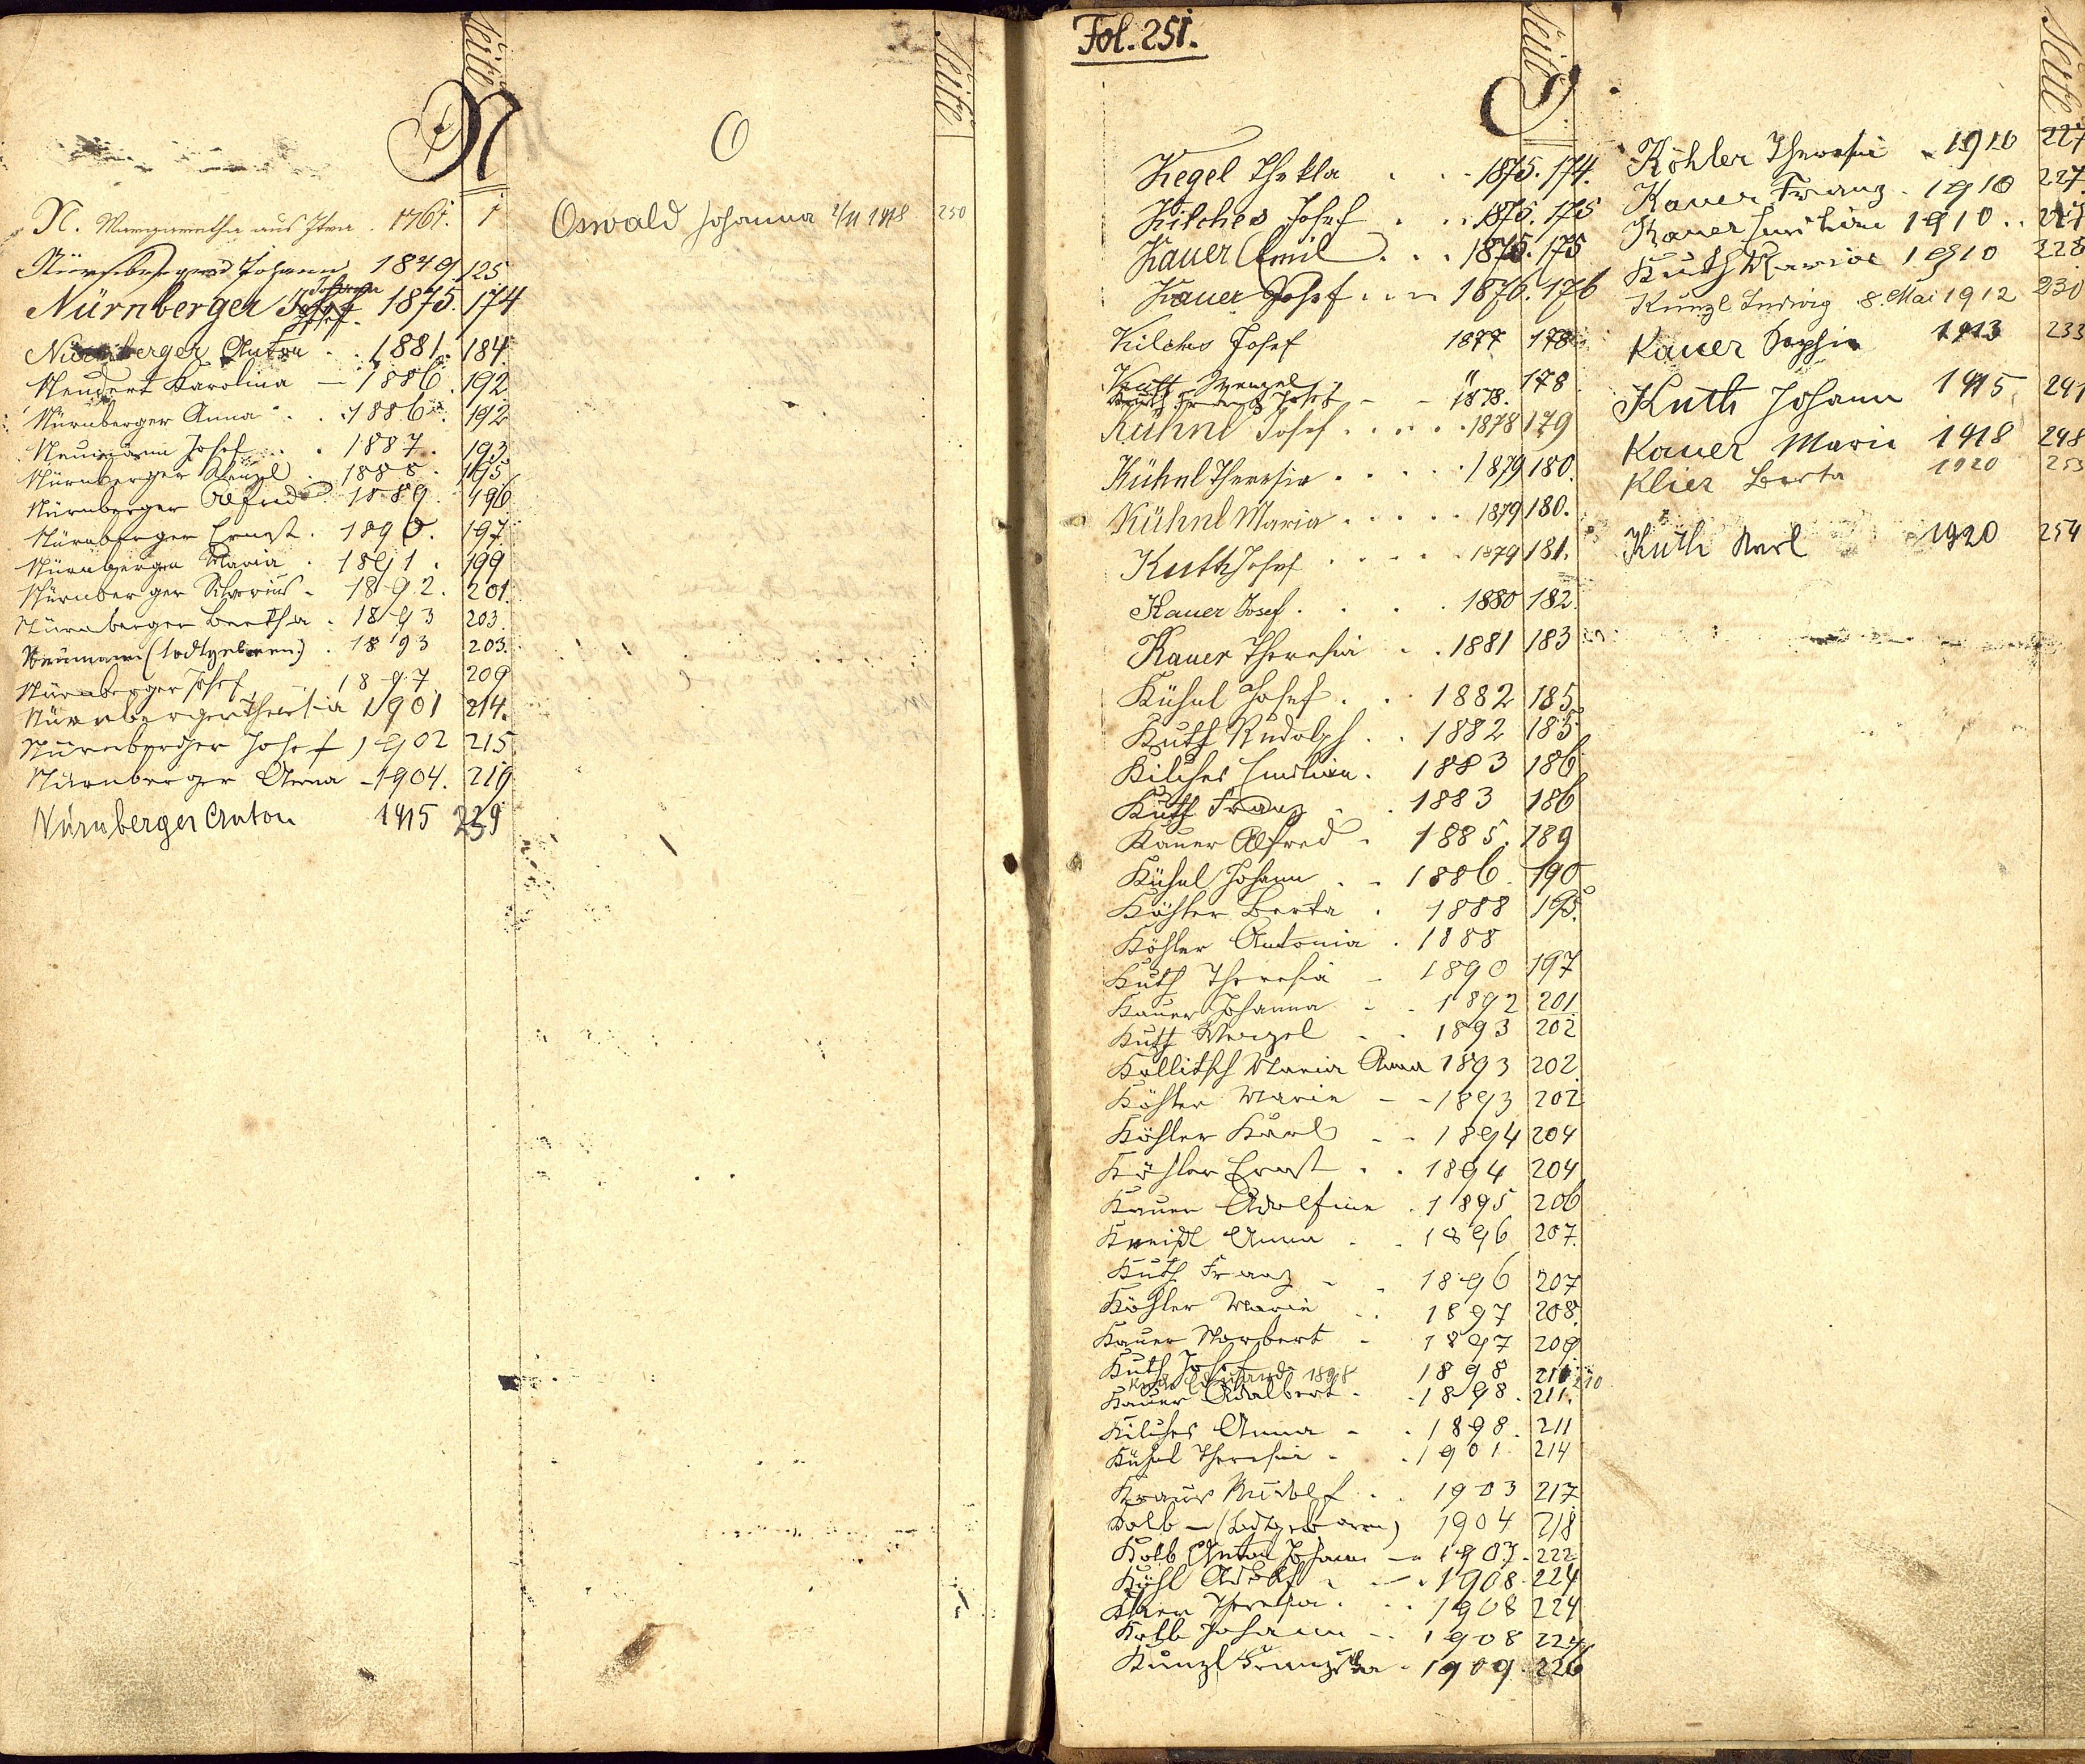 Seite
N
N. Margaretha aus Itra . 1761. 1
Nürnberger Johann 1849 125
Johann
Nürnberger Josef 1875. 174
Nürnberger Anton . . 1881. 184.
Neudert Karolina — 1886. 192
Nürnberger Anna . . 1886. 192
Neumann Josef . . 1887. 193
Nürnberger Wenzl . 1888. 195
Nürnberger Alfred 1889. 196
Nürnberger Ernst . 1890. 197.
Nürnberger Maria . 1891. 199
Nürnberger Silverius - 1892. 201.
Nürnberger Bertha . 1893 203.
Neumann (todtgeboren) . 1893 203.
Nürnberger Josef 1897 209
Nürnberger Theresia 1901 214.
Nürnberger Josef 1902 215
Nürnberger Anna - 1904. 219
Nürnberger Anton 1915 239
Seite
O
Oswald Johanna 2/11 1918 250
Fol. 251.
Seite
Kegel Thekla . . . 1875. 174.
Kilches Josef . . . 1875. 175
Kauer Emil . . . 1875. 175
Kauer Josef . . . 1876. 176
Kilches Josef 1877 178
Kutt Wenzel " 178
Josef - - 1878.
Kühnl Josef . . . . . 1878 179
Kühnl Theresia . . . . . 1879 180.
Kühnl Maria . . . . . 1879 180.
Kuth Josef . . . . . 1879 181.
Kauer Josef . . . . 1880 182.
Kauer Theresia . . 1881 183
Kühnl Josef . . 1882 185
Kuth Rudolph . . 1882 185
Kilches Emilian . 1883 186
Kuth Franz . . 1883 186
Kauer Alfred . 1885. 189
Kühnl Johann . . 1886. 190
Köhler Berta . 1888 195.
Köhler Antonia . 1888
Kuth Theresia - 1890 197
Kauer Johanna - . 1892 201
Kuth Wenzel - - 1893 202
Kollitsch Maria Anna 1893 202
Köhler Marie - - 1893 202
Köhler Karl . . 1894 204
Köhler Ernst . . 1894 204
Kauer Adolfine . 1895 206
Kreißl Anna . . 1896 207.
Kuth Franz - . 1896 207
Köhler Marie . . 1897 208.
Kauer Norbert - 1897 209
Kuth Josef 1898 210
Eduard 1898 210
Kauer Adalbert . . 1898. 211.
Kilches Anna - . 1898. 211
Kühnl Theresia - . 1901 214
Kraus Rudolf . . 1903 217
Kolb — (todtgeboren) 1904 218
Kolb Anton Johann — 1907. 222
Kühl Adolf . — . 1908. 224
Theresia . . . 1908 224
Kolb Johann . . 1908 224
Künzl Franziska . 1909. 226
Seite
Köhler Theresia . 1910 227
Kauer Franz . 1910 227.
Kauer Emilian 1910 . . 227
Kuth Marie 1910 228
Künzl Ludwig 8. Mai 1912 230
Kauer Sophie 1913 233
Kuth Johann 1915 241
Kauer Marie 1918 248
Klier Berta 1920 253
Kuth Karl 1920 254